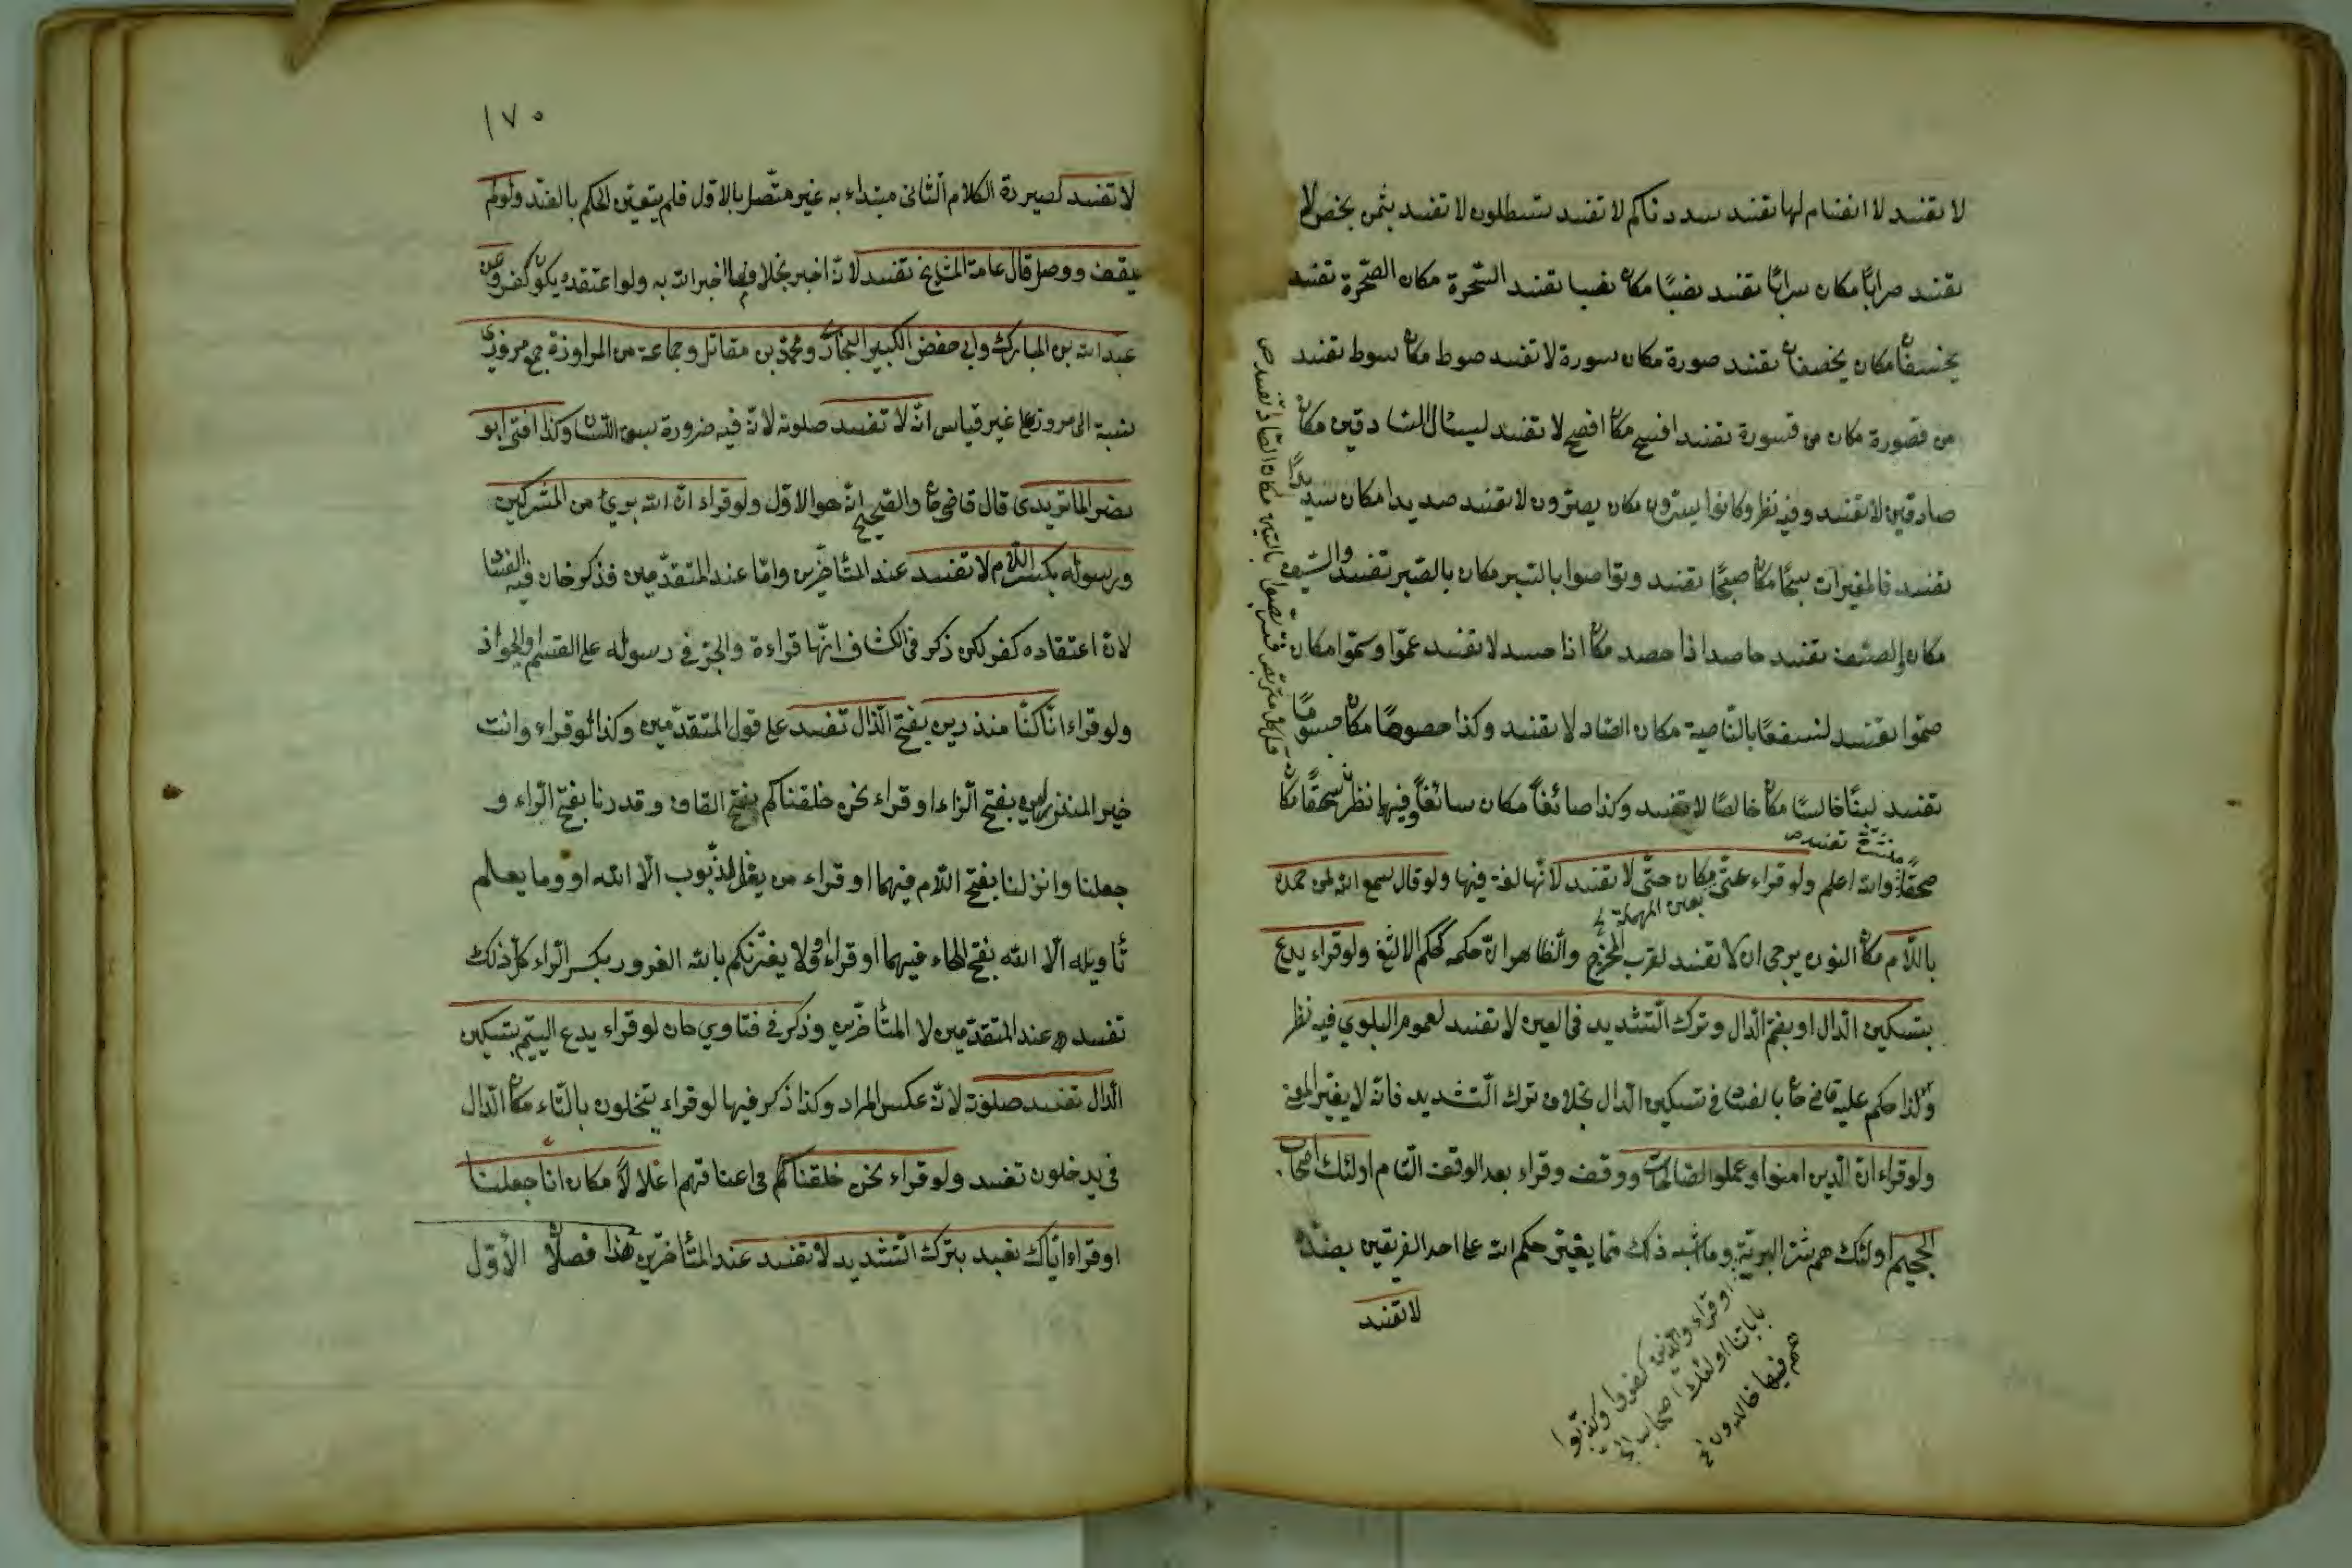 لا تفسد لا انفسام لها تفسد سددناكم لا تفسد تسطلون لا تفسد بثمن بخص لا
تفسد صرابًا مكان سرابًا تفسد نفسًا مكان تفسد السخرة مكان الصخرة تفسد
يخسفان مكان يخصفان تفسد صورة مكان سورة لا تفسد صوط مكان سوط تفسد
من قصورة مكان من قسورة تفسد افسح مكان افصح لا تفسد ليسئال السادقين مكان
صادقين لا تفسد وفيه نظر وكانوا يسرّون مكان يصرّون لا تفسد صديدا مكان سديدًا
تفسد فالمغيرات سبحًا مكان صبحًا تفسد وتواصوا بالسبر مكان بالصبر تفسد والسيف
مكان والصيف تفسد حاصد اذا حصد مكان اذا حسد لا تفسد عمّوا وسمّوا مكان
صمّوا تفسد لنسفعًا بالناصية مكان الصاد لا تفسد وكذا خصوصًا مكان
تفسد لبنًا خالسًا مكان خالصًا لا تفسد وكذا صائغًا مكان سائغًا وفيها نظر سحقًا مكان
صحقًا والله اعلم ولو قراء عتّى مكان حتّى لا تفسد لانّها لغة فيها ولو قال سمع الله لمن حمده
باللام مكان النون يرجى ان لا تفسد لقرب المخرج والظاهر انّ حكمه كحكم الالثغ ولو قراء يدعّ
بتسكين الدال او بضم الدال وترك التشديد في العين لا تفسد لعموم البلوي فيه نظر
وكذا حكم عليه قاضي خان بالفساد في تسكين الدال بخلاف ترك التشديد فانّه لا يغيّر المعنى
ولو قراء انّ الذين امنوا وعملوا الصالحات ووقف وقراء بعد الوقف التام اولئك اصحاب
الجحيم اولئك هم شرّ البريّة وما اشبه ذلك ممّا يغيّر حكم الله على احد الفريقين بضدّه
لا تفسد
او قراء والذين كفروا وكذّبوا
باياتنا اولئك اصحاب الجنة
هم فيها خالدون
١٧٠
لا تفسد لصيرورة الكلام الثاني مبتداء به غير متّصل بالاول فلم يتعيّن الحكم بالضد ولو لم
يقف ووصل قال عامة المشايخ تفسد لانّه اخبر بخلاف ما اخبر الله به ولو اعتقده يكون كفر وعن
عبد الله بن المبارك وابي حفص الكبير البخاري ومحمد بن مقاتل وجماعة من المراوزة جمع مروزي
نسبة الى مرو على غير قياس انّه لا تفسد صلوته لانّه فيه ضرورة سبق اللسان وكذا افتى ابو
نصر الماتريدى قال قاضي خان والصحيح انّه هو الاول ولو قراء انّ الله بريء من المشركين
ورسوله بكسر اللام لا تفسد عند المتأخرين وامّا عند المتقدّمين فذكر خان فيه الفساد
لانّ اعتقاده كفر لكن ذكر في الكشاف انّها قراءة والجرّ في رسوله على القسم والجواز
ولو قراء انّا كنّا منذرين بفتح الذال تفسد على قول المتقدّمين وكذا لو قراء وانت
خير المنزلين بفتح الزاء او قراء نحن خلقناكم بفتح القاف وقدرنا بفتح الراء و
جعلنا وانزلنا بفتح اللام فيهما او قراء من يغفر الذّنوب الّا الله او وما يعلم
تأويله الّا الله بفتح الهاء فيهما او قراء ولا يغرّنكم بالله الغرور بكسر الراء كل ذلك
تفسد عند المتقدّمين لا المتأخرين وذكر في فتاوي خان لو قراء يدع اليتيم بتسكين
الدال تفسد صلوته لانّه عكس المراد وكذا ذكر فيها لو قراء يتخلون بالتاء مكان الدال
في يدخلون تفسد ولو قراء نحن خلقناكم في اعناقهم اغلالًا مكان انّا جعلنا
او قراء ايّاك نعبد بترك التشديد لا تفسد عند المتأخرين هذا فصل الأوّل